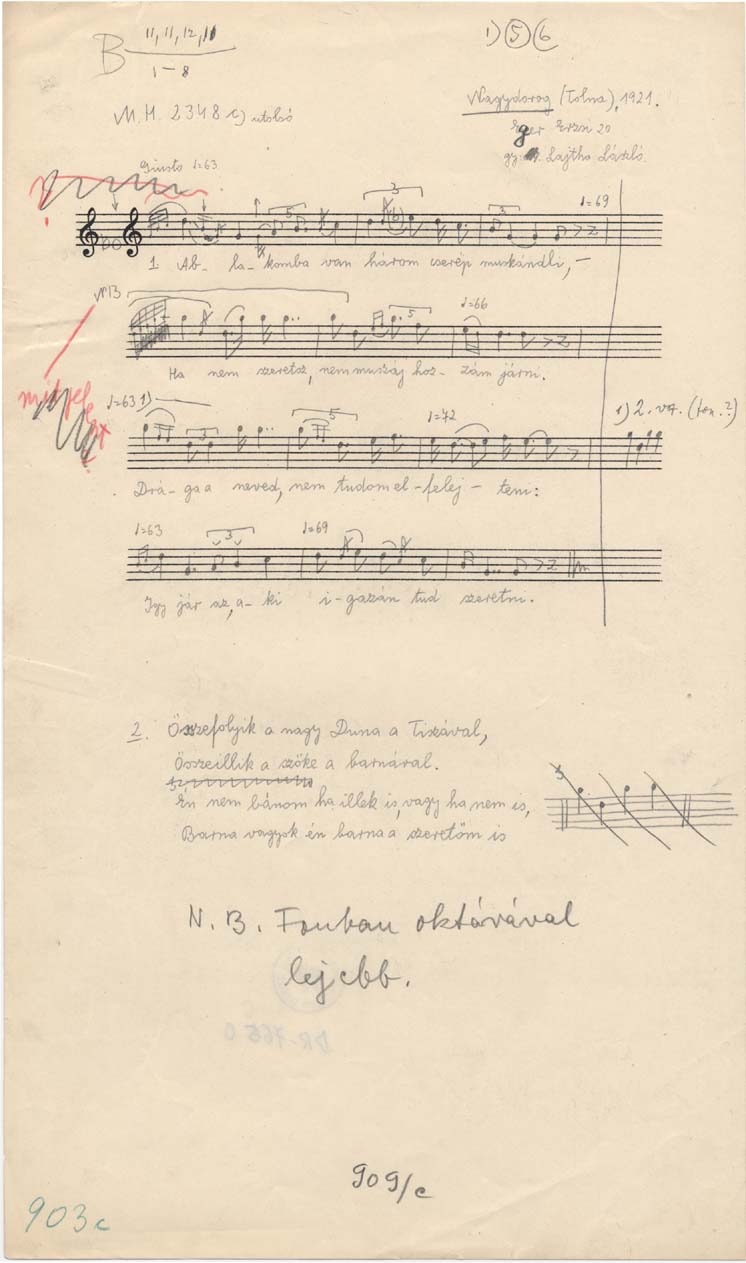 B 11, 11, 12, 11
1-8
1) 5 6
M.H. 2348 c) utolsó
Nagydorog (Tolna), 1921.
Eger Erzsi 20
gy. Lajtha László.
Giusto ♩=63
3
5
3
♩=69
1. Ab- la- komba van három cserép muskándli, -
NB
5
♩=66
Ha nem szeretsz, nem muszáj hoz- zám járni.
♩=63 1)
3
5
♩=72
1) 2. vsz. (fon.?)
Drá- ga a neved, nem tudom el- felej- teni:
♩=63
3
♩=69
Igy jár az, a- ki i- gazán tud szeretni.
2. Összefolyik a nagy Duna a Tiszával,
Összeillik a szőke a barnával.
Én nem bánom ha illek is, vagy ha nem is,
Barna vagyok én barna a szeretőm is
N.B. Fonban oktávával
lejebb.
909/c
903c